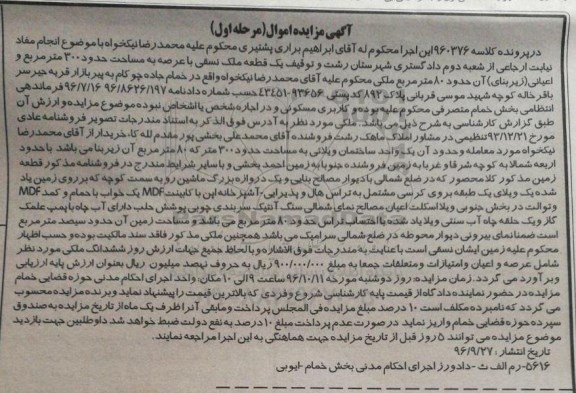 آگهی مزایده اموال (مرحله اول)
در پرونده کلاسه ۹۶۰۳۷۶ این اجرا محکوم له آقای ابراهیم براری پشتیری محکوم علیه محمد رضا نیکخواه با موضوع انجام مفاد
نیابت ارجاعی از شعبه دوم دادگستری شهرستان رشت و توقیف یک قطعه ملک نسقی با عرصه به مساحت حدود ۳۰۰ متر مربع و
اعیانی (زیر بنای) آن حدود ۸۰ متر مربع ملکی محکوم علیه آقای محمد رضا نیکخواه واقع در خمام جاده چوکام به پیر بازار قریه جیرسر
باقر خاله کوچه شهید موسی قربانی پلاک ۸۹۲ کد پستی ۴۳۴۵۱۰۹۳۶۵۶ حسب شماره دادنامه ۹۶/۸۶۲۶/۱۹۷ ۹۶/۷/۱۶ فرماندهی
انتظامی بخش خمام متصرفی محکوم علیه بوده و کاربری مسکونی و در اجاره شخص یا اشخاص نبوده موضوع مزایده و ارزش آن
طبق گزارش کارشناسی به شرح ذیل می باشد. ملکی مورد نظر به آدرس فوق الذکر به استناد مندرجات تصویر فروشنامه عادی
مورخ ۹۳/۱۲/۲۱ تنظیمی در مشاور املاک ماهک رشت فروشنده آقای محمد علی بخشی پور مقدم لله کا، خریدار از آقای محمد رضا
نیکخواه مورد معامله و حدود آن یک واحد ساختمان ویلائی به مساحت حدود ۳۰۰ متر که ۸۰ متر مربع آن زیر بنا می باشد با حدود
اربعه شمالا به کوچه شرقا و غربا به زمین فروشنده جنوبا به زمین احمد بخشی و با سایر شرایط مندرج در فروشنامه مذکور قطعه
زمین مذکور کلا محصور که در ضلع شمالی با دیوار مصالح بنایی و یک دروازه بزرگ ماشین رو به سمت کوچه که بر روی زمین یاد
شده یک ویلای یک طبقه بروی کرسی مشتمل به تراس هال و پذیرایی، آشپزخانه اپن با کابینت MDF یک خواب با حمام و کمد MDF
و توالت در بخش جنوبی ویلا اسکلت اعیان مصالح نمای شمالی سنگ آنتیک سربندی چوبی پوشش حلب دارای آب چاه با پمپ علمک
گاز و یک حلقه چاه آب سنتی ویلا یاد شده با احتساب تراس حدود ۸۰ متر مربع می باشد و مساحت زمین آن حدود سیصد متر مربع
است ضمنا نمای بیرونی دیوار محوطه در ضلع شمالی سرامیک می باشد همچنین ملکی مذکور فاقد سند مالکیت بوده و حسب اظهار
محکوم علیه زمین ایشان نسقی است با عنایت به مندرجات فوق الاشاره و با لحاظ جمیع جهات ارزش روز ششدانگ ملکی مورد نظر
شامل عرصه و اعیان و امتیازات و متعلقات جمعا به مبلغ ۹۰۰/۰۰۰/۰۰۰ ریال به حروف نهصد میلیون ریال بعنوان ارزش پایه ارزیابی
و برآورد می گردد. زمان مزایده: روز دوشنبه مورخه ۹۶/۱۰/۱۱ ساعت ۹ الی ۱۰ مکان: واحد اجرای احکام مدنی حوزه قضایی خمام
مزایده در حضور نماینده دادگاه از قیمت پایه کارشناسی شروع و فردی که بالاترین قیمت را پیشنهاد نماید و برنده مزایده محسوب
می گردد که نامبرده مکلف است ۱۰ درصد مبلغ مزایده فی المجلس پرداخت و مابقی آنرا ظرف یک ماه از تاریخ مزایده به صندوق
سپرده حوزه قضایی خمام واریز نماید در صورت عدم پرداخت مبلغ ۱۰ درصد به نفع دولت ضبط خواهد شد داوطلبین جهت بازدید
موضوع مزایده می توانند ۵ روز قبل از مزایده جهت هماهنگی به این اجرا مراجعه نمایند.
تاریخ انتشار: ۹۶/۹/۲۷
۵۶۱۶- رم الف ث - دادورز اجرای احکام مدنی بخش خمام - ایوبی